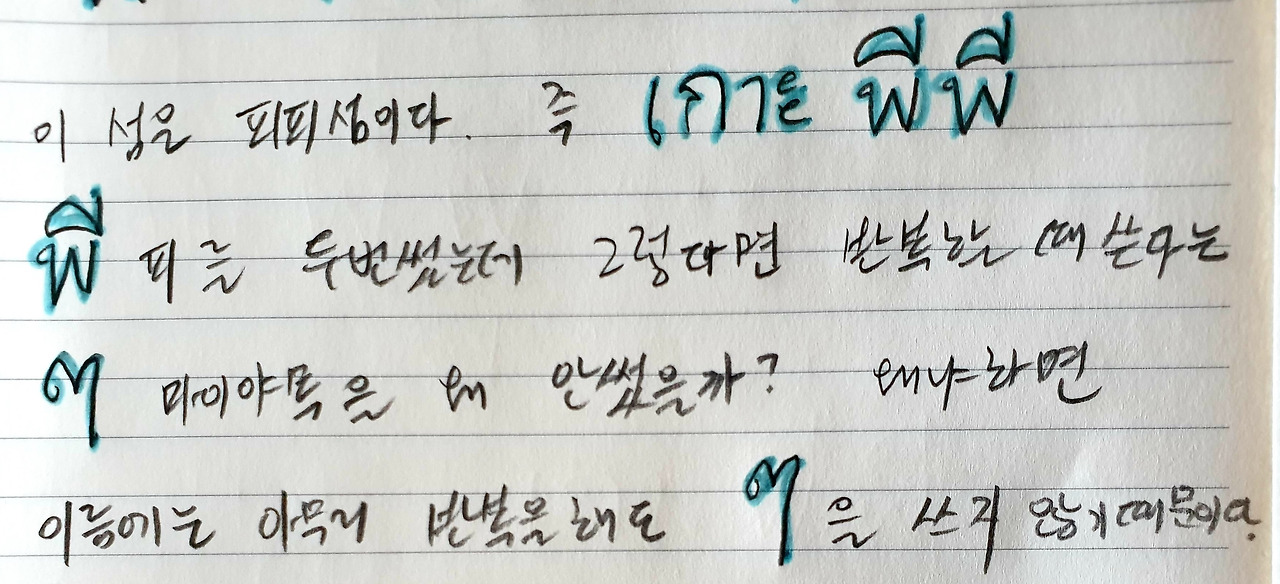 이 섬은 피피섬이다. 즉 เกาะ พีพี
พี 피를 두번썼는데 그렇다면 반복할 때 쓴다는
ๆ 마이야목을 왜 안썼을까? 왜냐하면
이름에는 아무리 반복을해도 ๆ을 쓰지 않기때문이다.